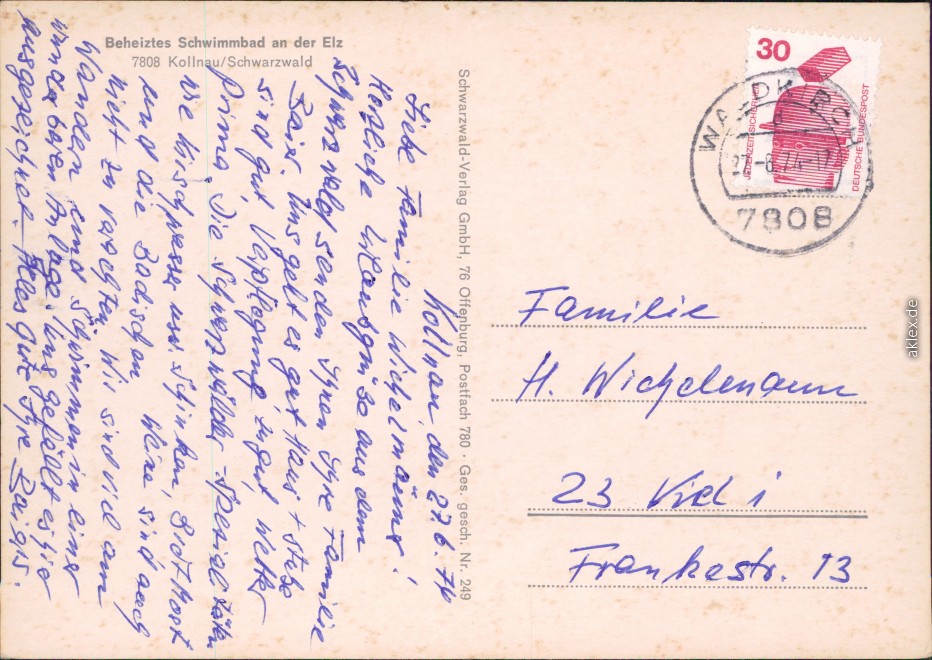 Beheiztes Schwimmbad an der Elz
7808 Kollnau/Schwarzwald
Kollnau, den 27.6.74
Liebe Familie Wichelmann!
Herzliche Urlaubsgrüße aus dem
Schwarzwald senden Ihnen Ihre Familie
Baigis. Uns geht es gut Haus +
sind gut, Verpflegung zu gut, Wetter
prima. Die Schwarzwälder-Spezialitäten
wie Kirschwasser usw. Schinken,
und die Badischen Weine sind auch
nicht zu verachten. Wir sind viel am
Wandern und Schwimmen in einer
wunderbaren Anlage. Uns gefällt es hier
ausgezeichnet. Alles gute Ihre Baigis.
Schwarzwald-Verlag GmbH, 76 Offenburg, Postfach 780 · Ges. gesch. Nr. 249
30
JEDERZEIT SICHERHEIT
DEUTSCHE BUNDESPOST
WALDKIRCH
27.-6.74-17
7808
Familie
H. Wichelmann
23 Kiel 1
Frankestr. 13
aklex.de